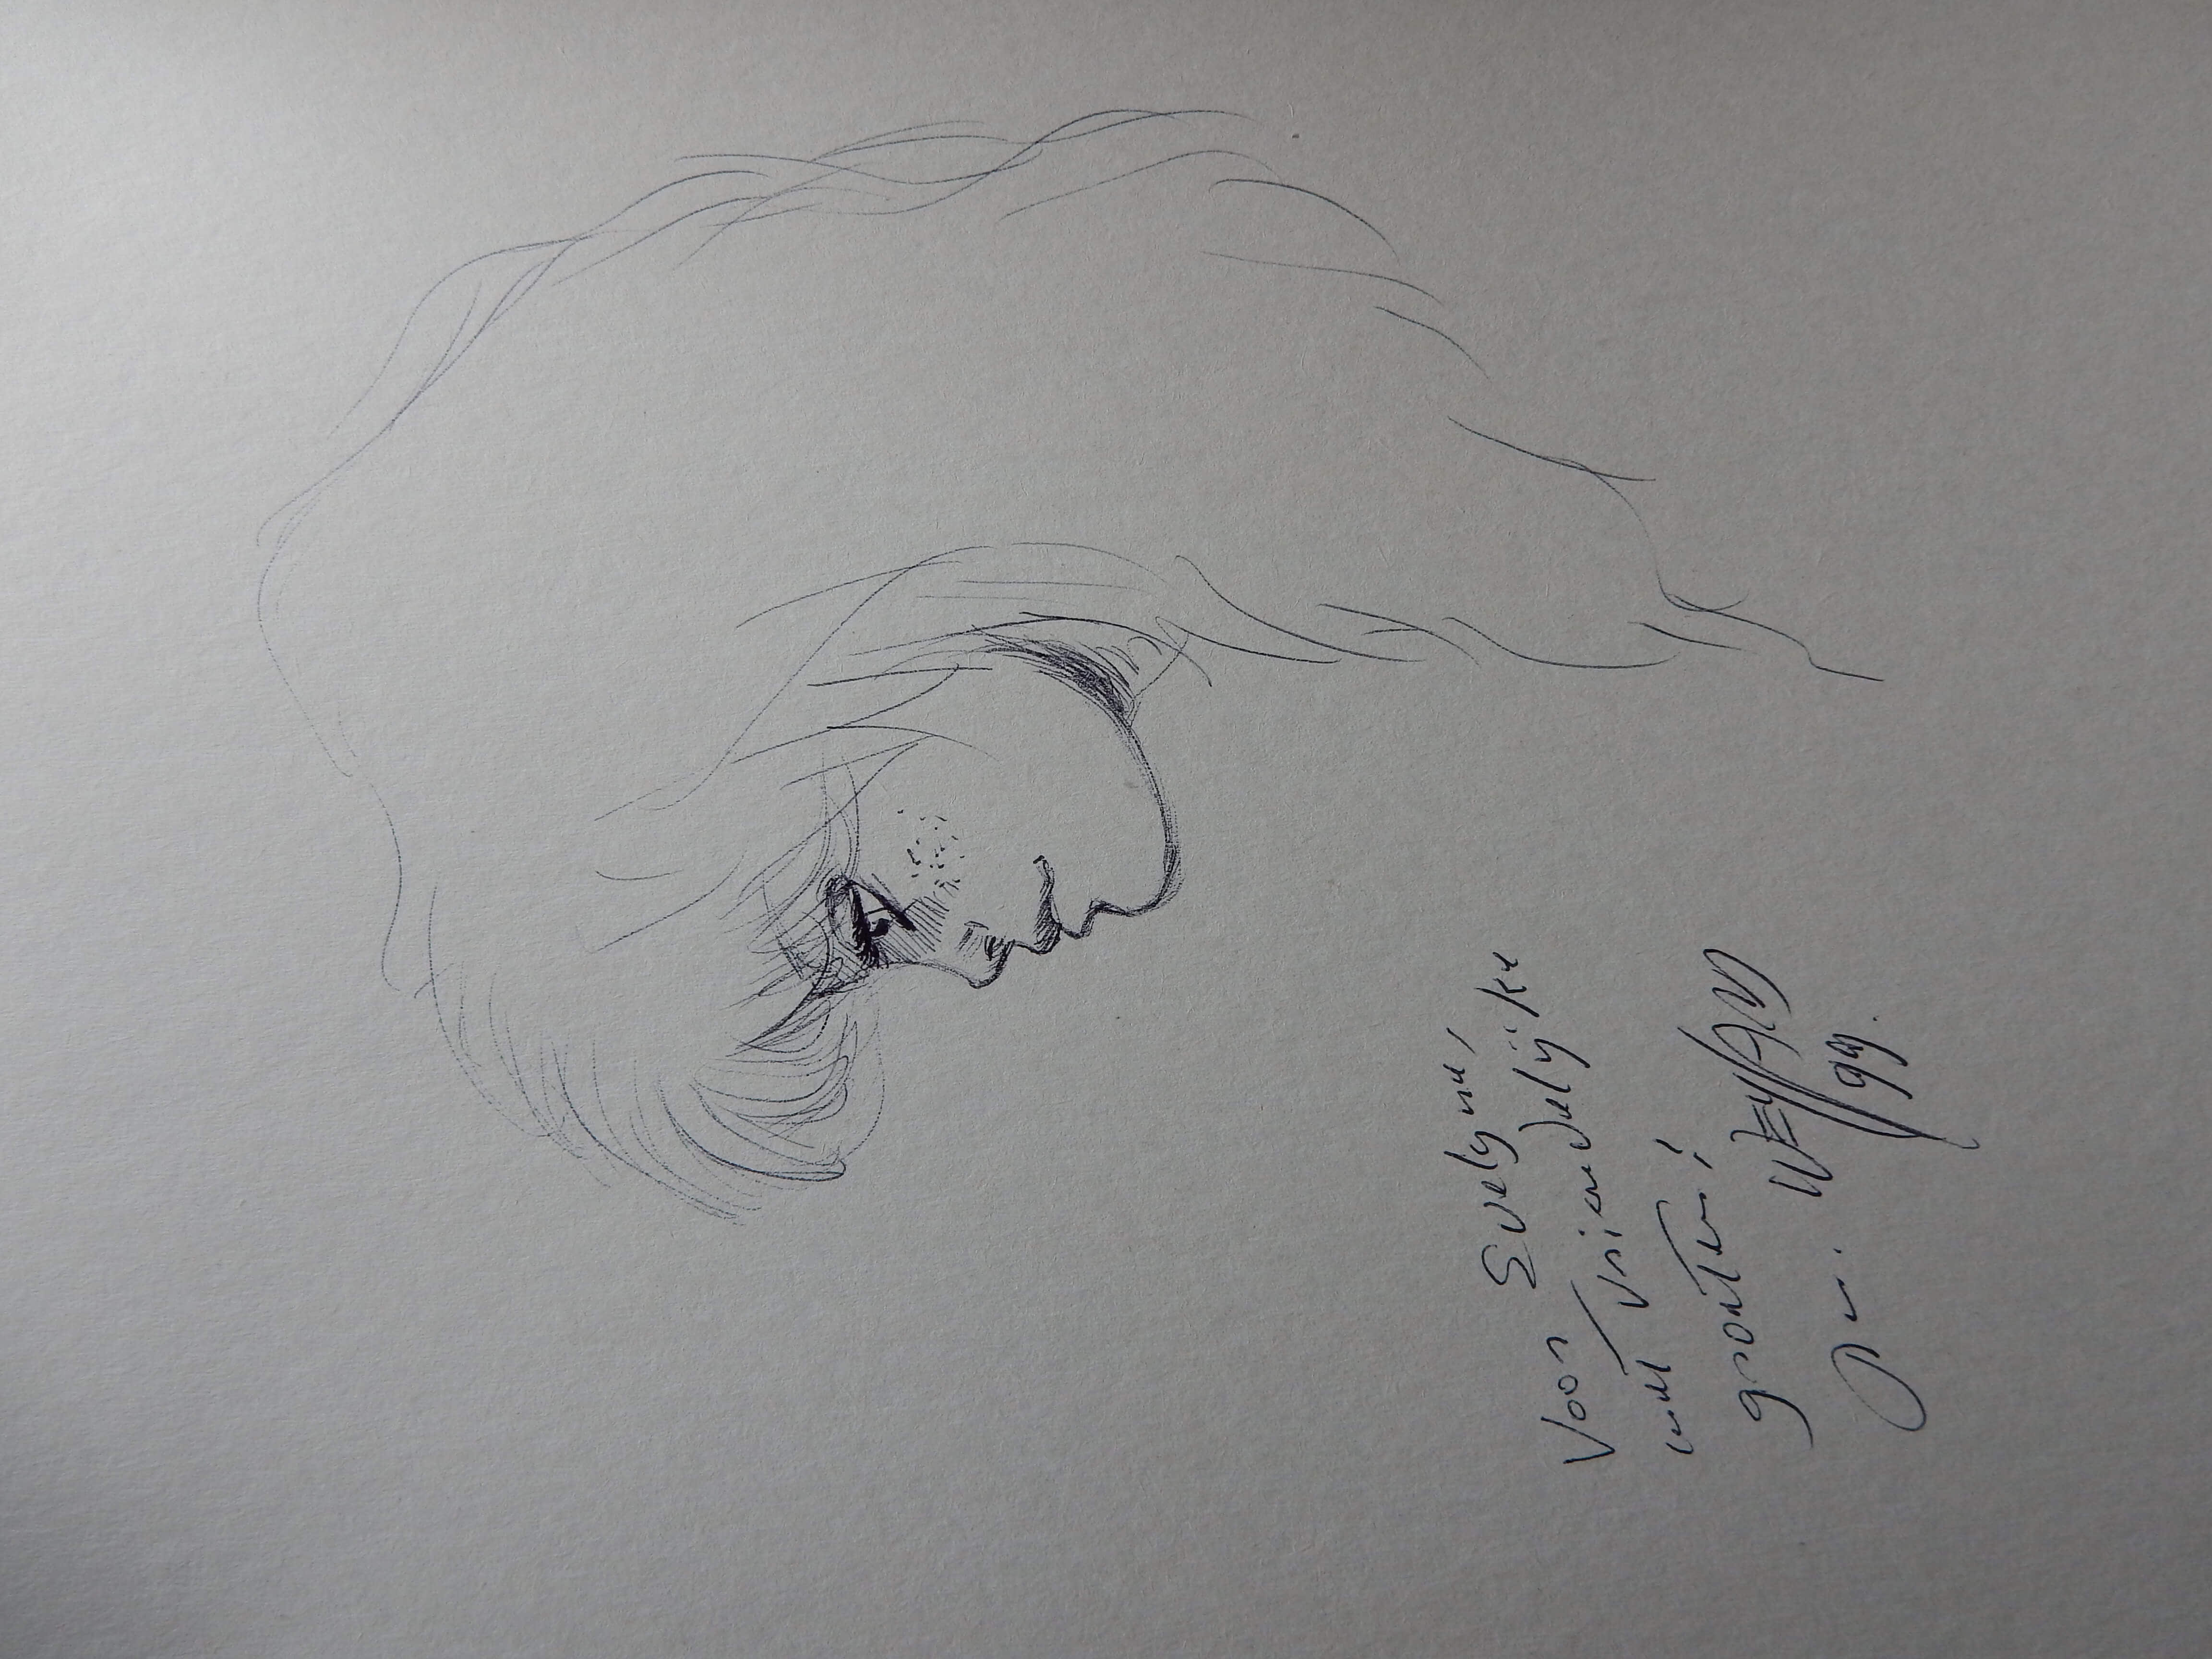 Voor Evelyne,
met vriendelijke
groeten!
WEYLAND
99.